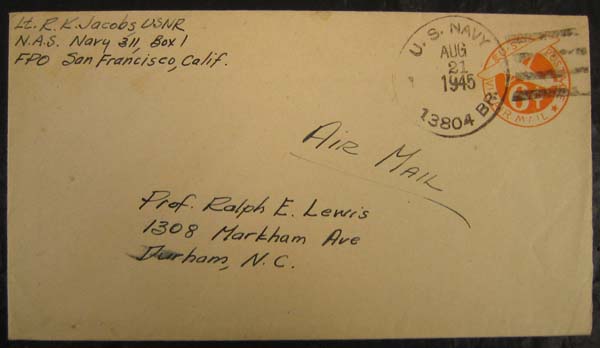 Lt. R. K. Jacobs, USNR
N.A.S. Navy 311, Box 1
FPO San Francisco, Calif.
U. S. NAVY
AUG
21
1945
13804 BR.
6¢
AIR MAIL
Prof. Ralph E. Lewis
1308 Markham Ave
Durham, N.C.